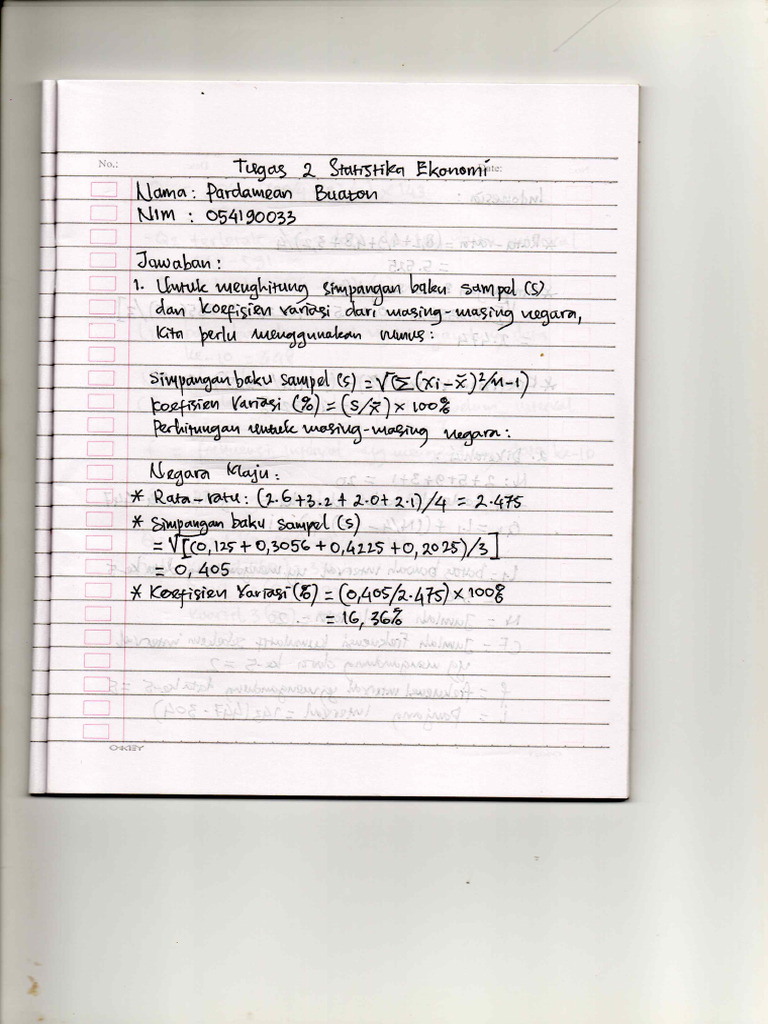 No.:
Date:
Tugas 2 Statistika Ekonomi
Nama : Pardamean Buaton
NIM : 054190033
Jawaban :
1. Untuk menghitung simpangan baku sampel (s)
dan koefisien variasi dari masing-masing negara,
Kita perlu menggunakan rumus :
Simpangan baku sampel (s) = √(Σ (xi - x̄)²/n-1)
Koefisien Variasi (%) = (s/x̄) × 100%
Perhitungan untuk masing-masing negara :
Negara Maju :
* Rata-ratu : (2.6+3.2+2.0+2.1)/4 = 2.475
* Simpangan baku sampel (s)
= √[(0,125 + 0,3056 + 0,4225 + 0,2025)/3]
= 0,405
* Koefisien Variasi (%) = (0,405/2.475) × 100%
= 16,36%
OKEY